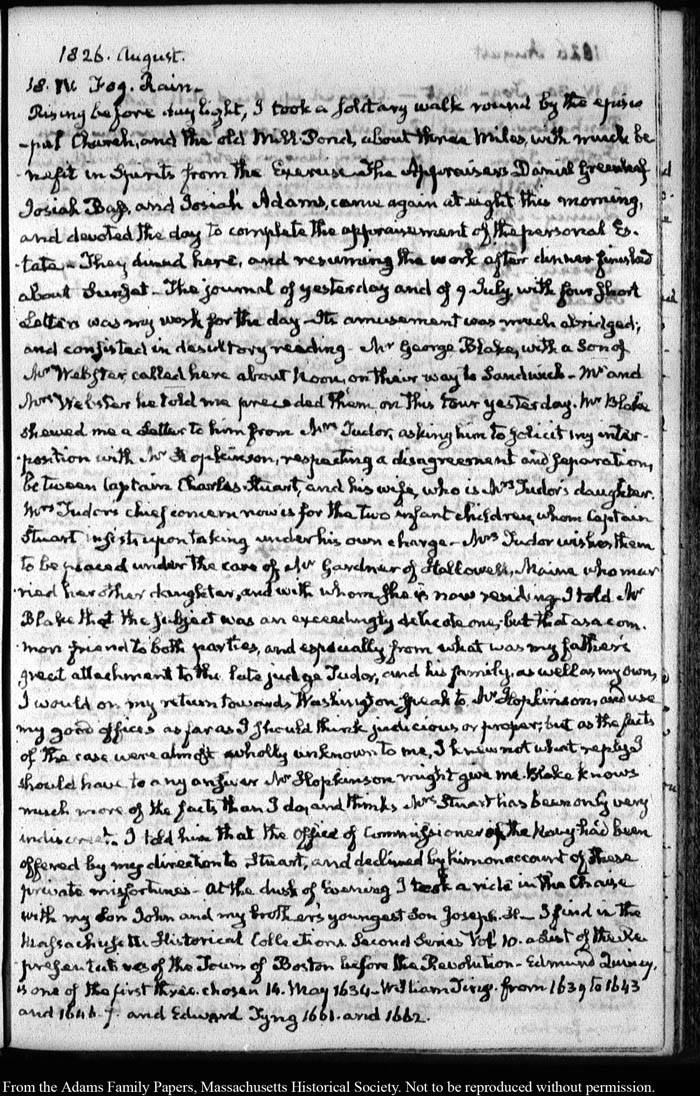 1826. August.
18. IV. Fog. Rain.
Rising before day light, I took a solitary walk round by the episco
-pal Church, and the old Mill Pond, about three Miles, with much be
-nefit in Spirits from the Exercise. The Appraisers Daniel Greenleaf
Josiah Bass, and Josiah Adams, came again at eight this morning,
and devoted the day to complete the appraisement of the personal Es-
-tate. They dined here, and resuming the work after dinner finished
about Sunset. The journal of yesterday and of 9 July, with four short
Letters was my work for the day. Its amusement was much abridged;
and consisted in desultory reading. Mr George Blake, with a Son of
Mr Webster called here about Noon, on their way to Sandwich. Mr and
Mrs Webster he told me preceded them on this tour yesterday. Mr Blake
shewed me a Letter to him from Mrs Tudor, asking him to solicit my inter-
-position with Mr Hopkinson, respecting a disagreement and separation,
between Captain Charles Stuart, and his wife, who is Mrs Tudor's daughter.
Mrs Tudor's chief concern now is for the two infant children, whom Captain
Stuart insists upon taking under his own charge. Mrs Tudor wishes them
to be placed under the care of Mr Gardner of Hallowell, Maine who mar
-ried her other daughter, and with whom she is now residing. I told Mr
Blake that the subject was an exceedingly delicate one; but that as a com-
mon friend to both parties, and especially from what was my father's
great attachment to the late judge Tudor, and his family, as well as my own,
I would on my return towards Washington speak to Mr Hopkinson, and use
my good offices as far as I should think judicious or proper; but as the facts
of the case were almost wholly unknown to me, I knew not what reply I
should have to any answer Mr Hopkinson might give me. Blake knows
much more of the facts than I do, and thinks Mrs Stuart has been only very
indiscreet. I told him that the Office of Commissioner of the Navy had been
offered by my direction to Stuart, and declined by him on account of these
private misfortunes. At the dusk of Evening I took a ride in the Chaise
with my Son John and my brother's youngest Son Joseph. H. I find in the
Massachusetts Historical Collections Second Series Vol. 10. a List of the Re
presentatives of the Town of Boston before the Revolution. Edmund Quincy,
is one of the first three. chosen 14. May 1634. William Ting. from 1639 to 1643
and 1646. 7. and Edward Tyng 1661. and 1662.
From the Adams Family Papers, Massachusetts Historical Society. Not to be reproduced without permission.